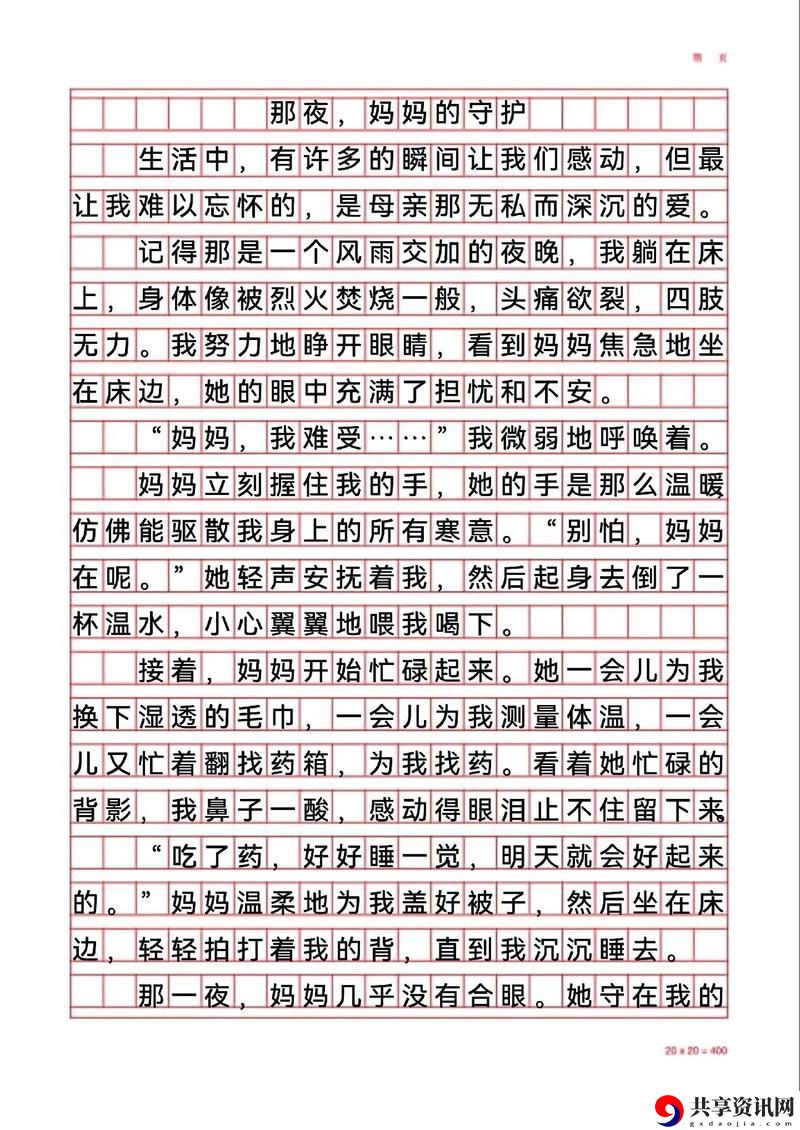 那夜，妈妈的守护
生活中，有许多的瞬间让我们感动，但最
让我难以忘怀的，是母亲那无私而深沉的爱。
记得那是一个风雨交加的夜晚，我躺在床
上，身体像被烈火焚烧一般，头痛欲裂，四肢
无力。我努力地睁开眼睛，看到妈妈焦急地坐
在床边，她的眼中充满了担忧和不安。
“妈妈，我难受……”我微弱地呼唤着。
妈妈立刻握住我的手，她的手是那么温暖，
仿佛能驱散我身上的所有寒意。“别怕，妈妈
在呢。”她轻声安抚着我，然后起身去倒了一
杯温水，小心翼翼地喂我喝下。
接着，妈妈开始忙碌起来。她一会儿为我
换下湿透的毛巾，一会儿为我测量体温，一会
儿又忙着翻找药箱，为我找药。看着她忙碌的
背影，我鼻子一酸，感动得眼泪止不住留下来。
“吃了药，好好睡一觉，明天就会好起来
的。”妈妈温柔地为我盖好被子，然后坐在床
边，轻轻拍打着我的背，直到我沉沉睡去。
那一夜，妈妈几乎没有合眼。她守在我的
20 x 20 = 400
共享资讯网
gxdaojia.com